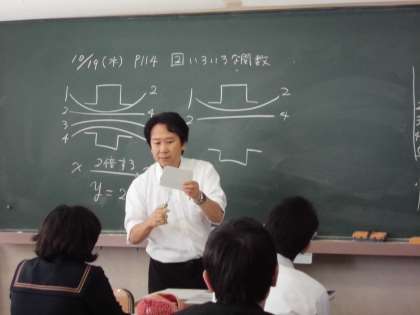 10/19(水) P114 2 いろいろな関数
1 2
2 4
3
4
2
4
x 2倍する
y=2